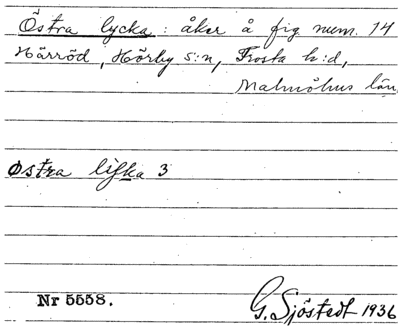 Östra lycka : åker å fig num. 14
Härröd, Hörby s:n, Frosta h:d,
Malmöhus län.
Østra liſka 3
Nr 5558.
G. Sjöstedt 1936